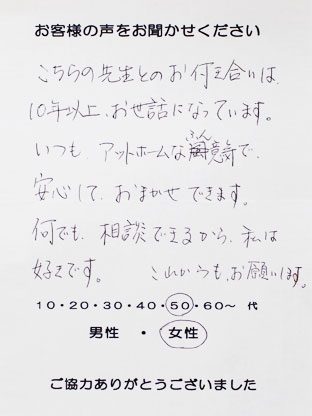 お客様の声をお聞かせください
こちらの先生とのお付き合いは、
10年以上、お世話になっています。
いつも、アットホームな雰意気で、
ふん
安心して、おまかせできます。
何でも、相談できるから、私は
好きです。 これからも、お願いします。
10・20・30・40・50・60～ 代
男性 ・ 女性
ご協力ありがとうございました